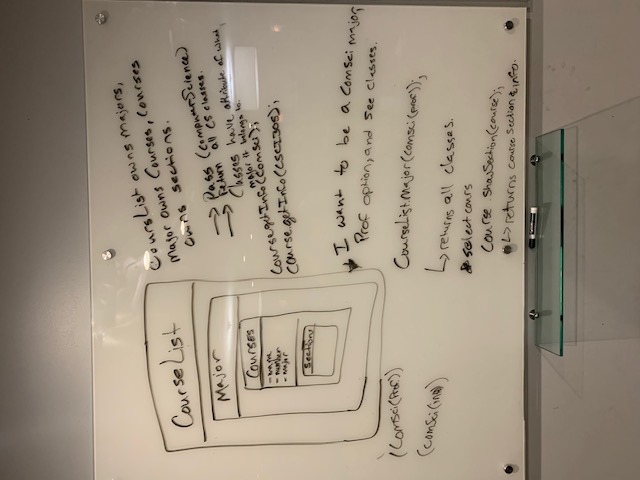 CourseList
Major
Courses
- name
- number
- major
Sections
(ComSci(Prof))
(ComSci(ino))
CoursList owns majors,
Major owns Courses, Courses
owns sections.
→ Pass (ComputerScience)
→ Return all CS classes.
Classes have attribute of what
major it belongs to.
Course.getInfo(ComSci);
Course.getInfo(CSCI305);
I want to be a ComSci major,
Prof option, and see classes.
CourseList.Major(comsci(prof));
↳ returns all classes.
select cours
Course.ShowSection(course);
↳ returns course section & info.